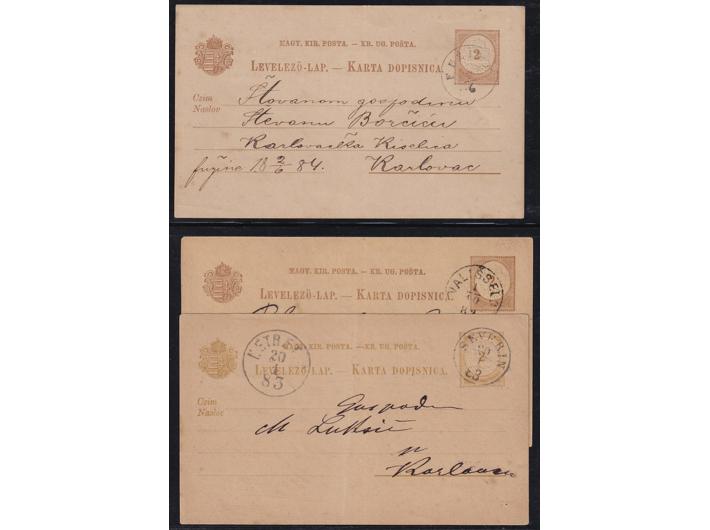 MAGY. KIR. POSTA. — KR. UG. POŠTA.
LEVELEZŐ-LAP. — KARTA DOPISNICA.
2
Czim
Naslov
Štovanom gospodinu
Stevanu Borčiću
Karlovačka Kiselica
Karlovac
fužine 18 2/6 84.
MAGY. KIR. POSTA. — KR. UG. POŠTA.
LEVELEZŐ-LAP. — KARTA DOPISNICA.
MAGY. KIR. POSTA. — KR. UG. POŠTA.
LEVELEZŐ-LAP. — KARTA DOPISNICA.
20
83
SEVERIN
20
83
Czim
Naslov
Gospodin
M Luksić
u
Karlovac